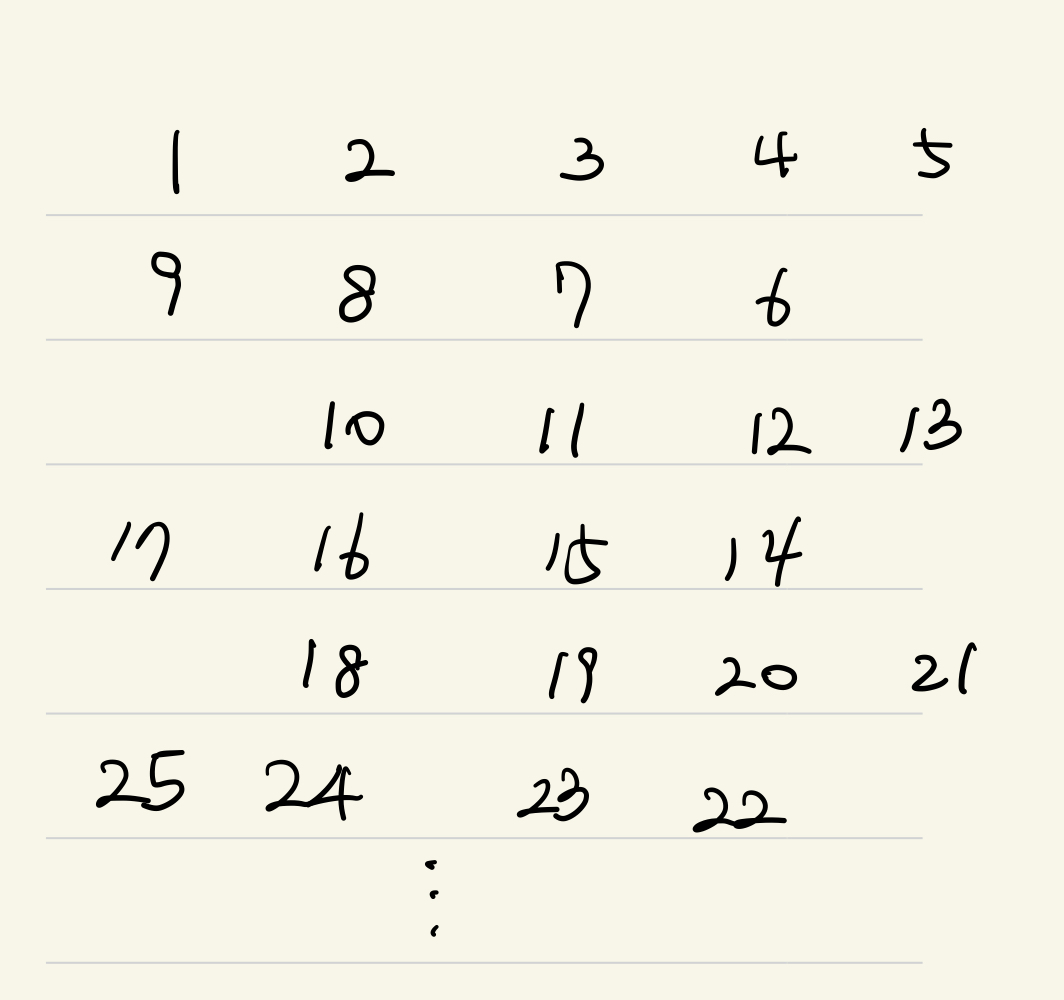 1 2 3 4 5
9 8 7 6
10 11 12 13
17 16 15 14
18 19 20 21
25 24 23 22
⋮